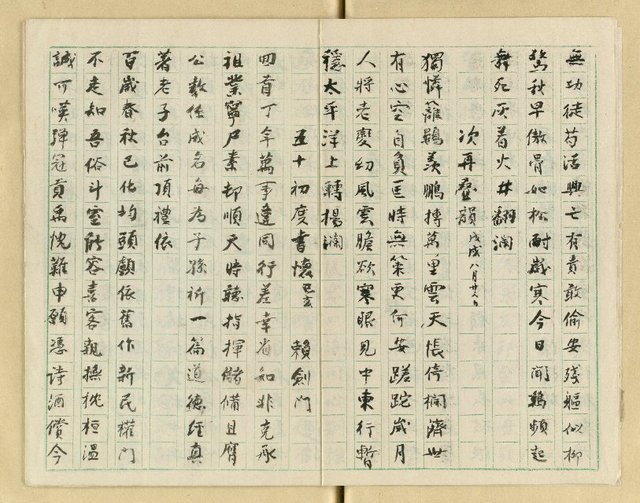 無功徒芍活興亡有責敢偷安殘軀似柳
驚秋早傲骨如松耐歲寒今日聞鷄頻起
舞死灰着火井翻瀾
次再疊韻戊戌八月廿八日
獨憐籬鷃羨鵬摶萬里雲天悵倚欄濟世
有心空自負匡時無策更何安蹉跎歲月
人將老變幻風雲膽欲寒眼見中東行暫
穩太平洋上轉揚瀾
五十初度書懷己亥 賴劍門
回首丁年萬事違同行差幸省知非克承
祖業寧尸素却順天時聽指揮儲備且膺
公教任成名每為子孫祈一篇道德經真
著老子台前頂禮依
百歲春秋已佔均頭顱依舊作新民權門
不走知吾俗斗室能容喜客親操枕桓溫
誠可嘆彈冠貢禹愧難申願憑詩酒償今